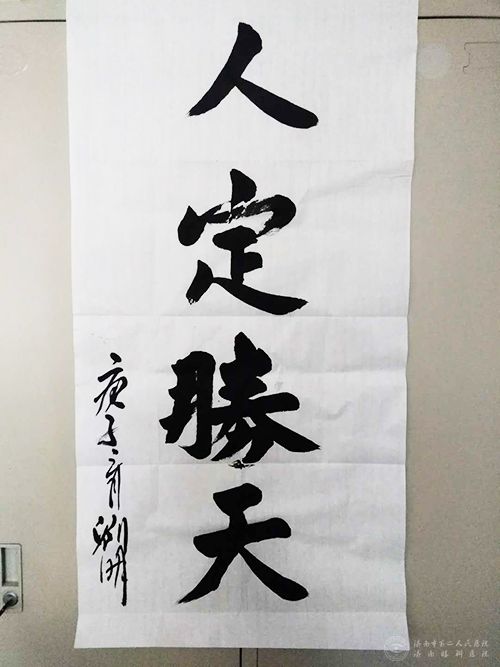 人定勝天
庚子
明
济南市第二人民医院
济南眼科医院